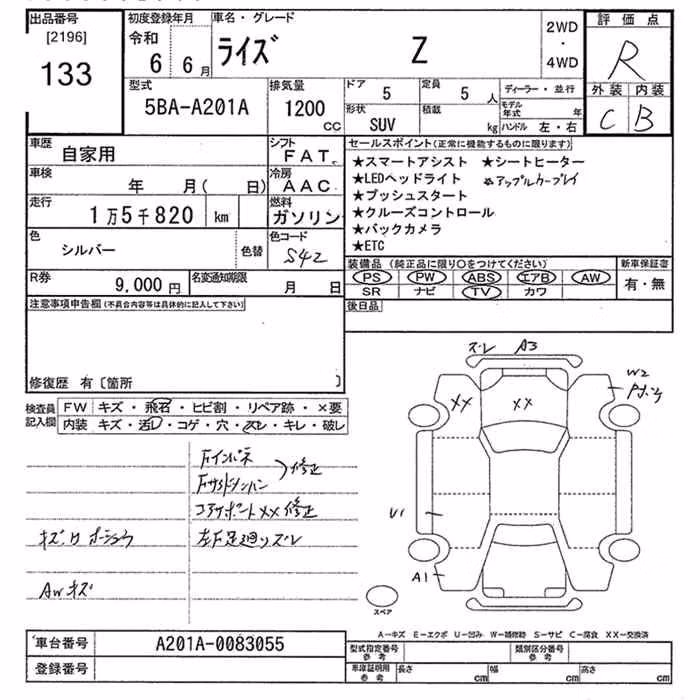 出品番号 初度登録年月 車名・グレード 2WD ・ 4WD 評価点
[2196] 133
令和 6 6月 ライズ Z R
外装 内装
C B
型式 排気量 ドア 5 定員 5人 ディーラー・並行
5BA-A201A 1200 CC 形状 SUV 積載 kg モデル年式 年
ハンドル 左・右
車歴 自家用 シフト FAT セールスポイント(正常に機能するものに限ります)
車検 年 月( 日) 冷房 AAC
★スマートアシスト ★シートヒーター
★LEDヘッドライト ★アップルカープレイ
★プッシュスタート
★クルーズコントロール
★バックカメラ
★ETC
走行 1万5千820 km 燃料 ガソリン
色 シルバー 色替 色コード S42
装備品(純正品に限り○をつけてください) 新車保証書
PS PW ABS エアB AW 有・無
SR ナビ TV カワ
R券 9,000円 名変通知期限 月 日
後日品
注意事項申告欄(不具合内容等は具体的に記入して下さい)
修復歴 有〔箇所 〕
検査員記入欄 FW キズ・飛石・ヒビ割・リペア跡・×要
内装 キズ・汚レ・コゲ・穴・スレ・キレ・破レ
Fインパネ
FサイドメンバN
修正
コアサポートXX修正
左F足廻りズレ
AWキズ
ズレ A3
W2
XX XX
U1
A1
スペア
A―キズ E―エクボ U―凹み W―補修跡 S―サビ C―腐食 XX―交換済
車台番号 A201A-0083055
登録番号
型式指定番号 参考 類別区分番号 参考
車庫証明用 参考 長さ cm 幅 cm 高さ cm